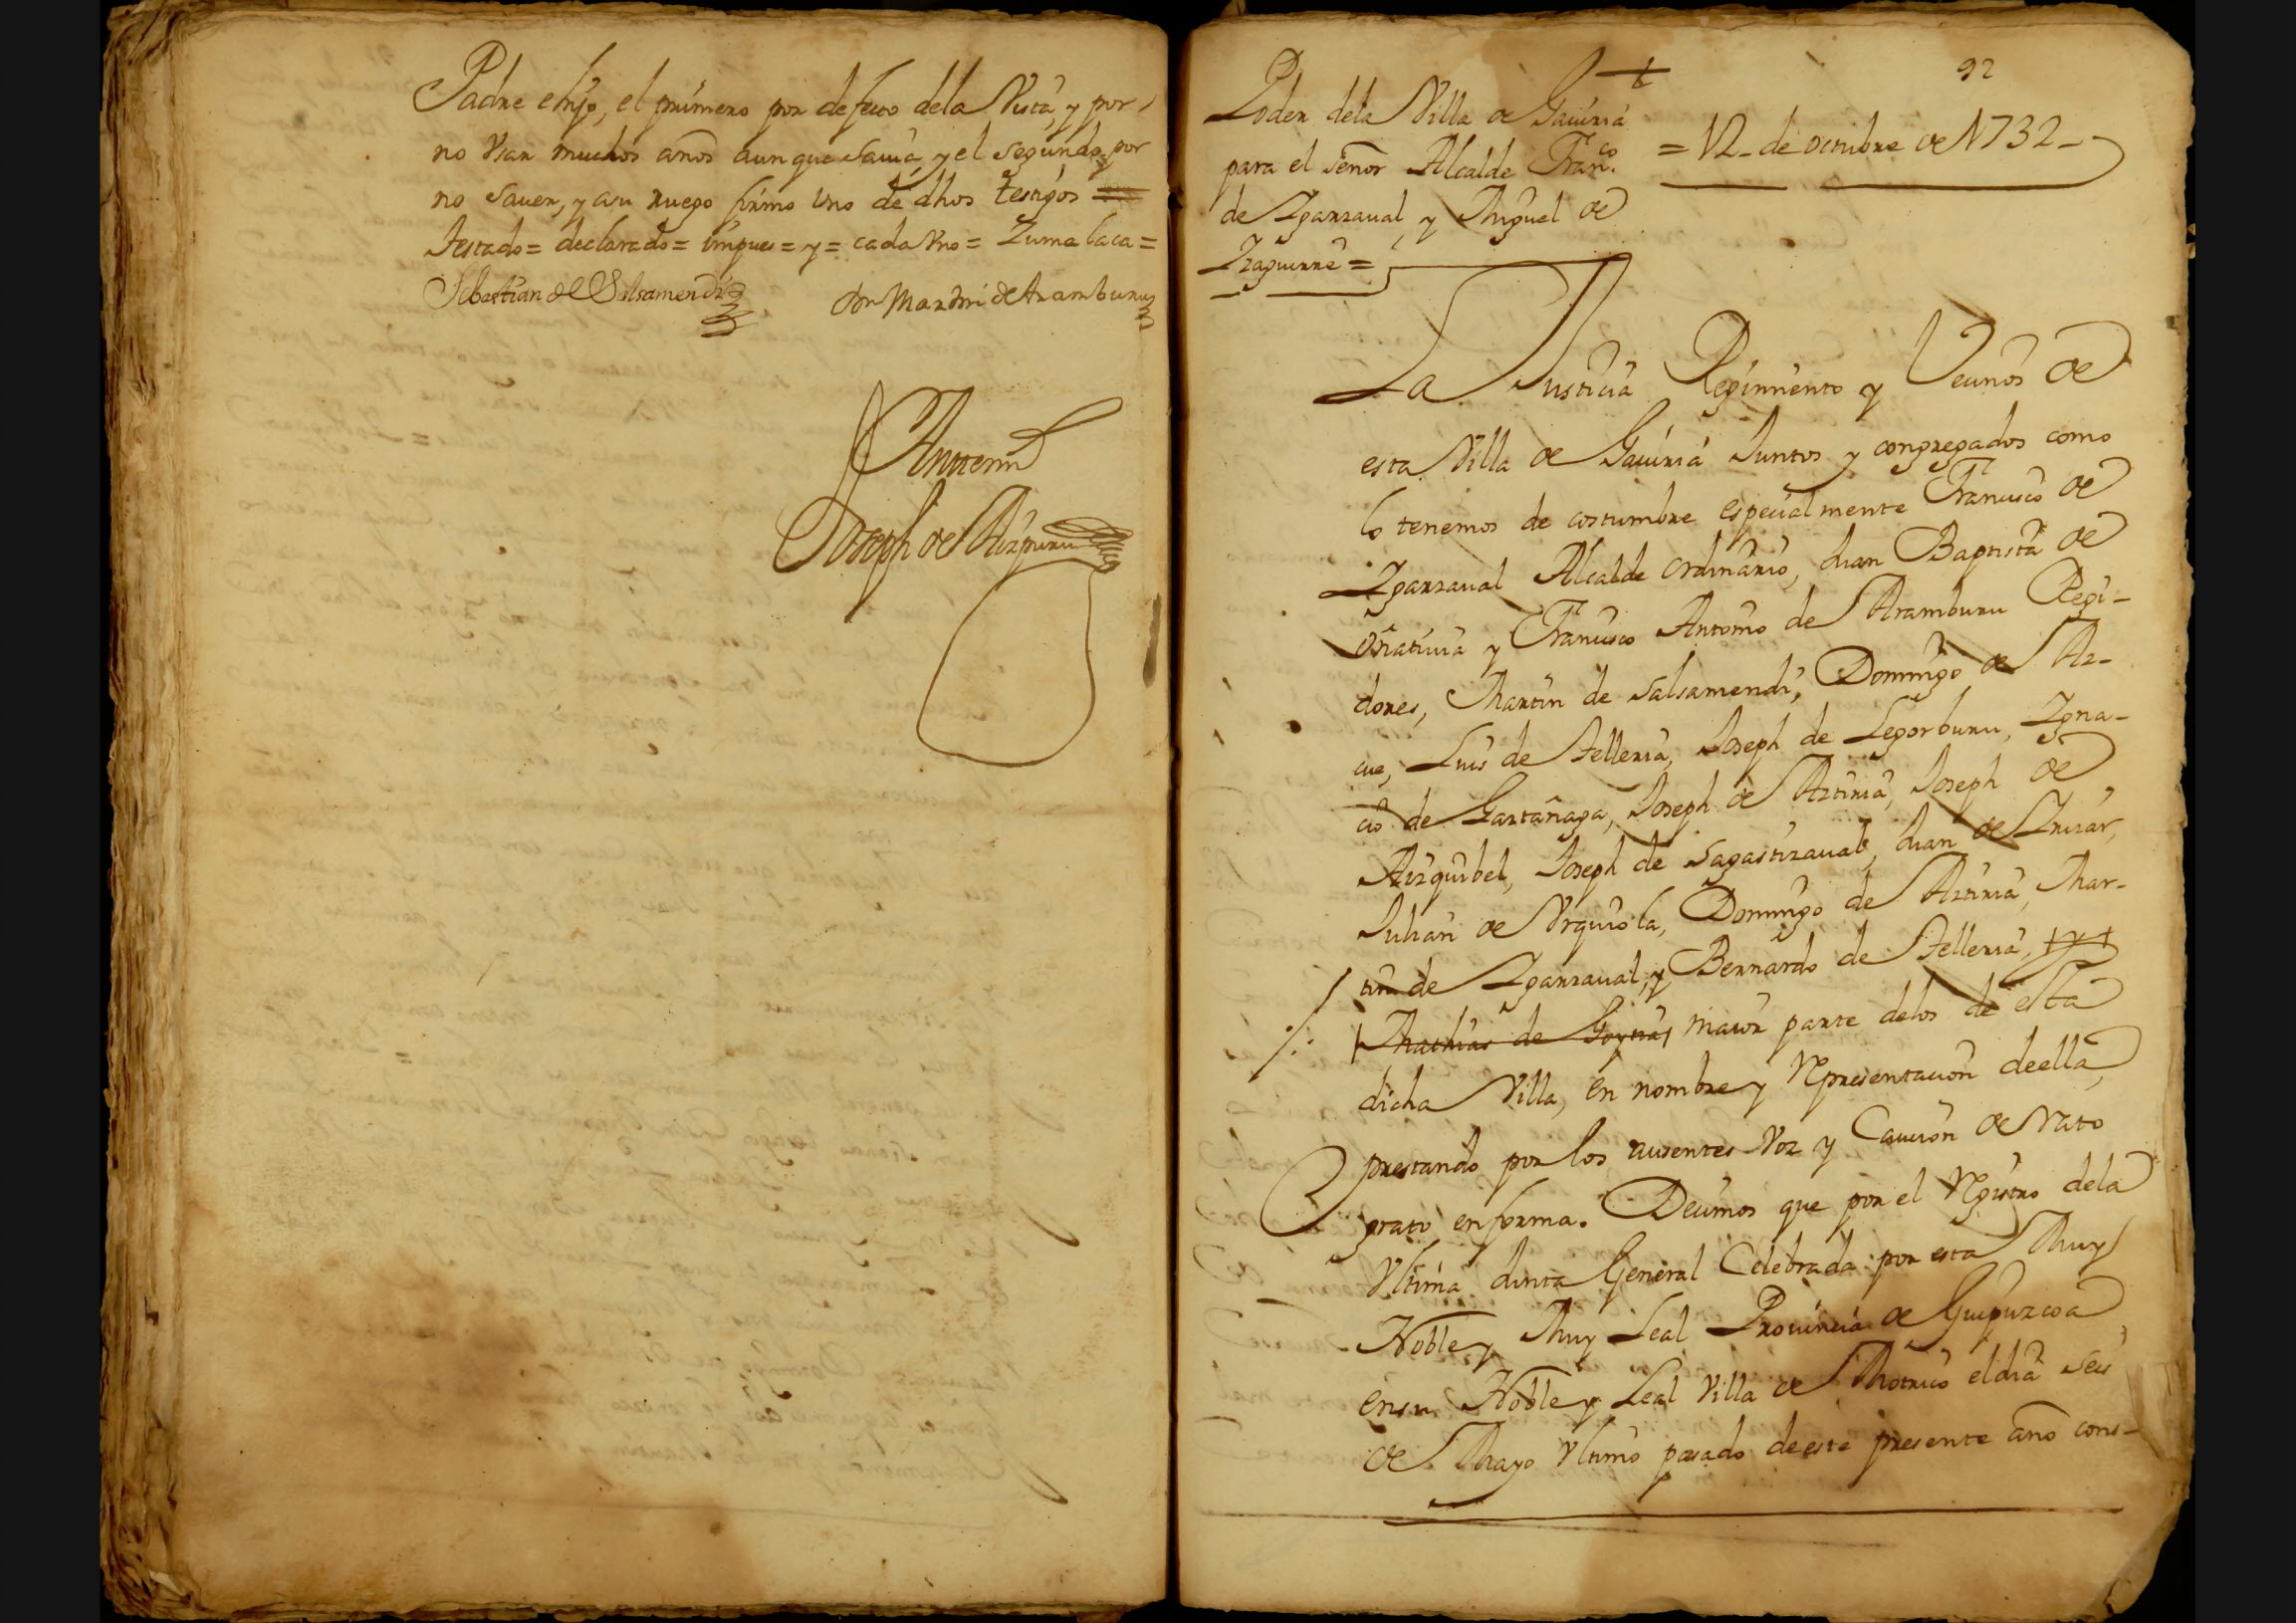 Padre e hijo, el primero por defecto dela Vista, y por
no Vsar muchos años aunque savia, y el segundo, por
no saver, y asu ruego firmo Vno de dhos testigos =
Testado = declarado = impues = y = cada Vno = Zumalaca =
Sebastian de Salsamendi Don Martin de Aramburu
Antemi
Joseph de Aizpuru
92
Poder dela Villa de Gaviria
para el señor Alcalde Franco
de Igarzaval, y Miguel de
Izaguirre =
= 12 - de octubre de 1732 -
La Justicia Regimiento y Vecinos de
esta Villa de Gaviria Juntos y congregados como
lo tenemos de costumbre especialmente Francisco de
Igarzaval Alcalde ordinario, Juan Baptista de
Oñativia y Francisco Antonio de Aramburu Regi-
dores, Martin de Salsamendi, Domingo de Az-
cue, Luis de Telleria, Joseph de Legorburu, Igna-
cio de Gartañaga, Joseph de Aztiria, Joseph de
Aizquibel, Joseph de Sagastizaval, Juan de Irizar,
Julian de Vrquiola, Domingo de Aztiria, Mar-
tin de Igarzaval, y Bernardo de Telleria, y
Mathias de Goytia, maior parte delos de esta
dicha Villa, en nombre y Representacion deella,
prestando por los ausentes Voz y Caucion de Rato
grato en forma. Decimos que por el Registro dela
Vltima Junta General Celebrada por esta Muy
Noble y Muy Leal Provincia de Guipuzcoa
ensu Noble y Leal Villa de Motrico el dia seis
de Mayo Vltimo pasado deeste presente año cons-